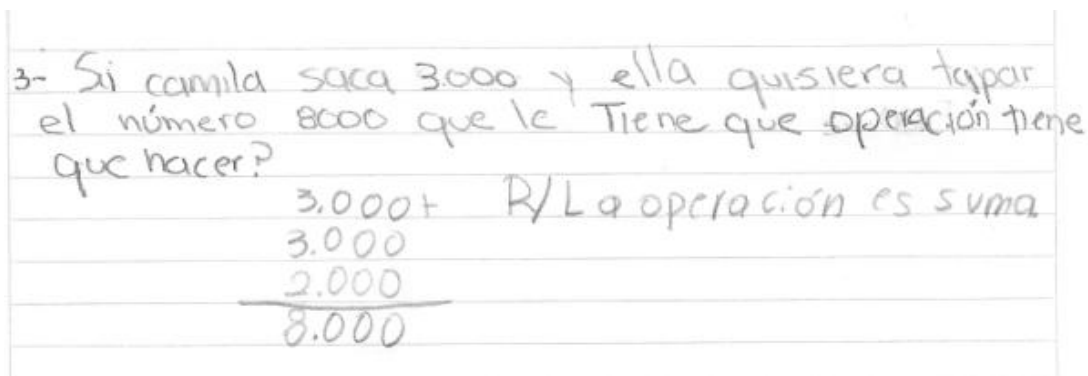 3- Si camila saca 3.000 y ella quisiera tapar
el número 8000 que le Tiene que operación tiene
que hacer?
3.000+ R/La operación es suma
3.000
2.000
8.000